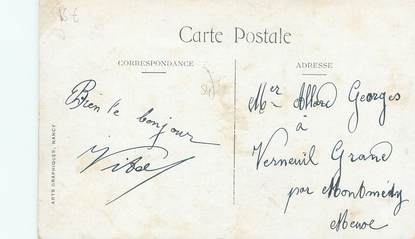 15 €
Carte Postale
CORRESPONDANCE
ADRESSE
Bien le bonjour
Mer Allard Georges
à
Verneuil Grand
par Montmédy
Meuse
ARTS GRAPHIQUES, NANCY